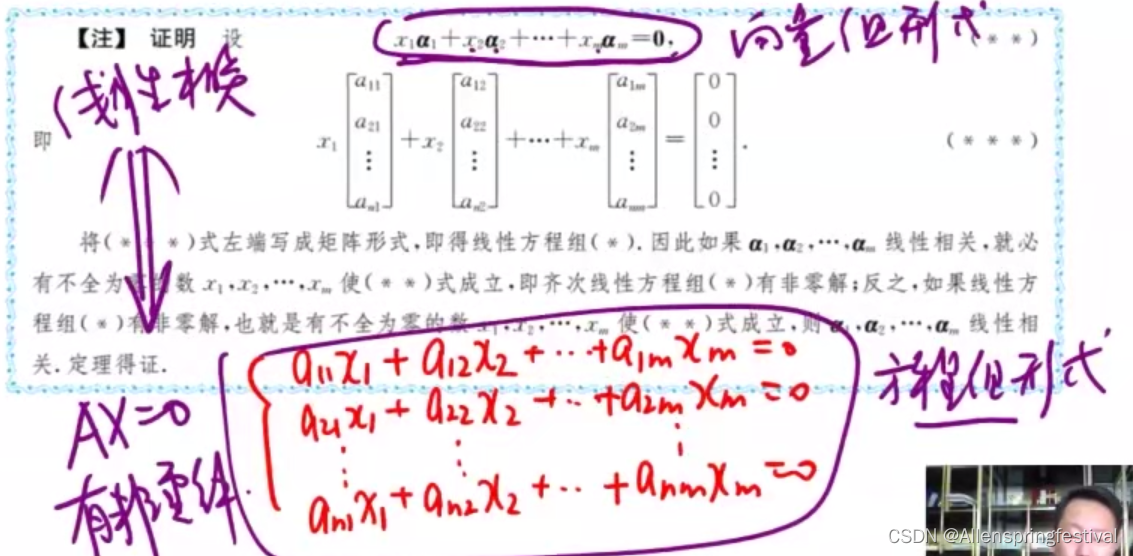 【注】 证明 设 x₁α₁+x₂α₂+⋯+xₘαₘ=0, (**)
向量组形式
线性相关
即 x₁[a₁₁ a₂₁ ⋮ aₙ₁]+x₂[a₁₂ a₂₂ ⋮ aₙ₂]+⋯+xₘ[a₁ₘ a₂ₘ ⋮ aₙₘ]=[0 0 ⋮ 0]. (***)
将(***)式左端写成矩阵形式,即得线性方程组(*).因此如果 α₁,α₂,⋯,αₘ 线性相关,就必
有不全为零的数 x₁,x₂,⋯,xₘ 使(**)式成立,即齐次线性方程组(*)有非零解;反之,如果线性方
程组(*)有非零解,也就是有不全为零的数 x₁,x₂,⋯,xₘ 使(**)式成立,则 α₁,α₂,⋯,αₘ 线性相
关.定理得证.
a₁₁x₁+a₁₂x₂+⋯+a₁ₘxₘ=0
a₂₁x₁+a₂₂x₂+⋯+a₂ₘxₘ=0
⋮ ⋮ ⋮
aₙ₁x₁+aₙ₂x₂+⋯+aₙₘxₘ=0
方程组形式
AX=0
有非零解.
CSDN @Allenspringfestival